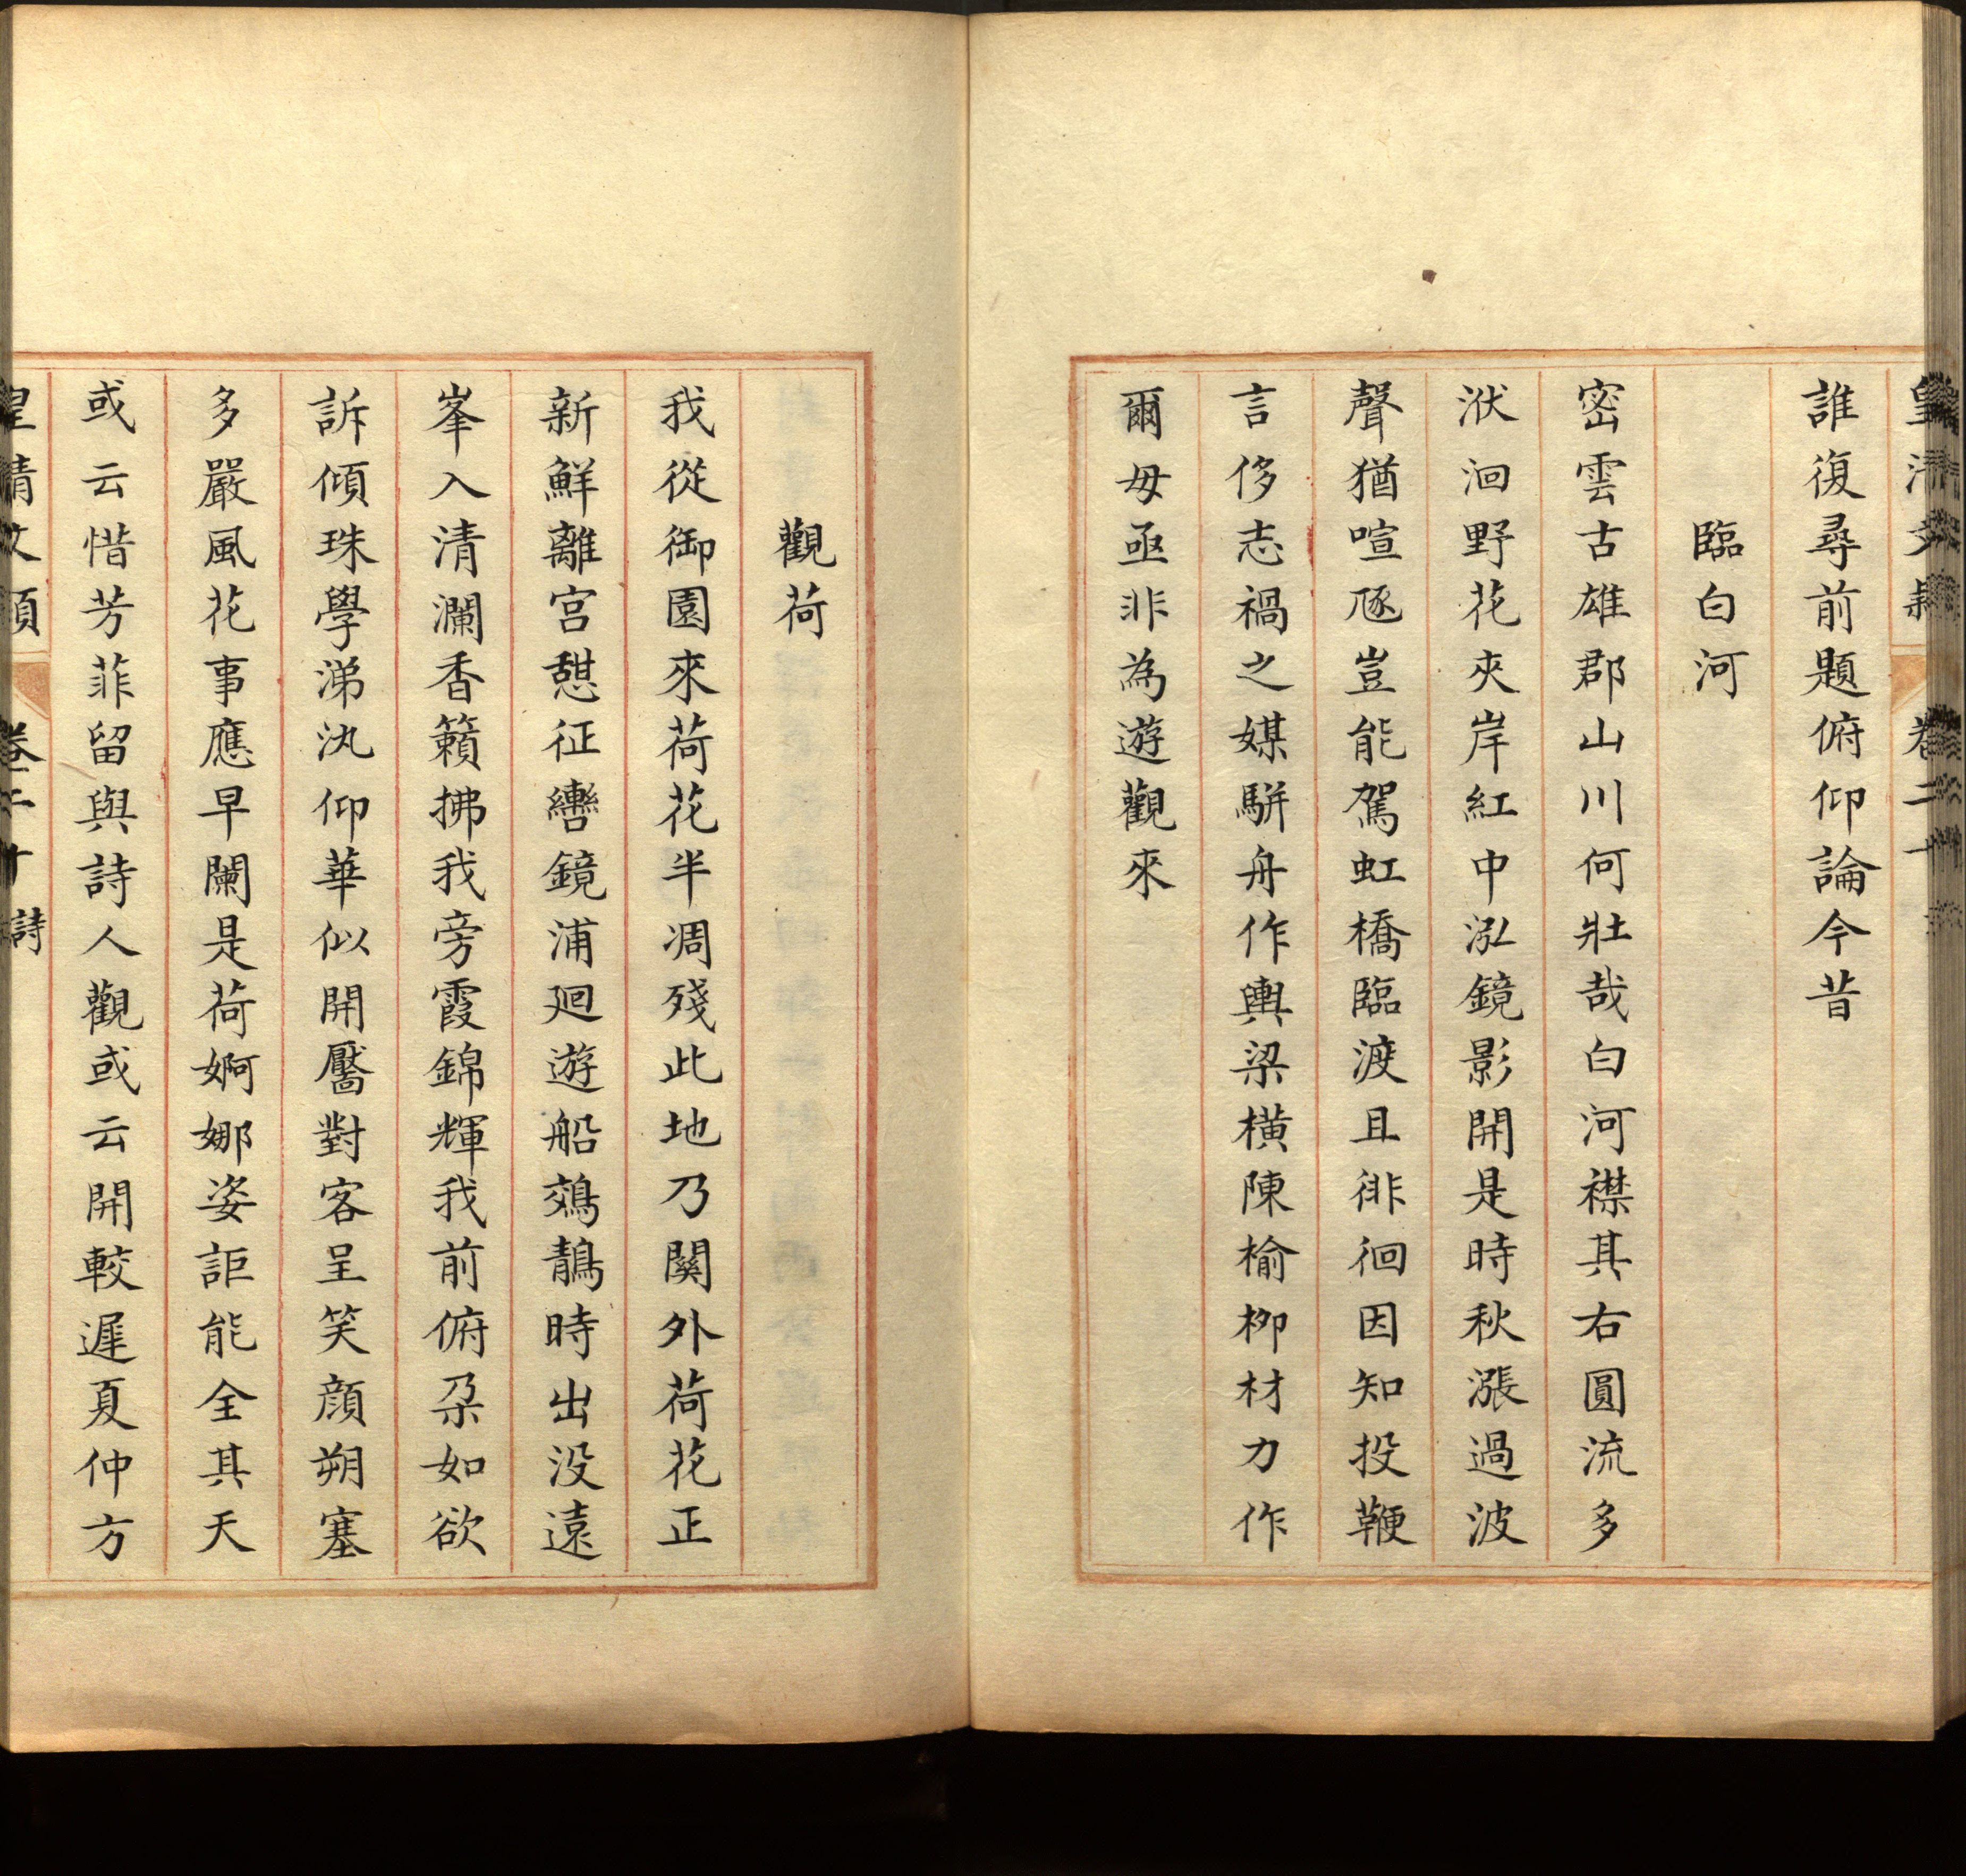 誰復尋前題俯仰論今昔
臨白河
密雲古雄郡山川何壯哉白河襟其右圓流多
洑洄野花夾岸紅中泓鏡影開是時秋漲過波
聲猶喧豗豈能駕虹橋臨渡且徘徊因知投鞭
言侈志禍之媒駢舟作輿梁橫陳榆栁材力作
爾毋亟非為遊觀來
觀荷
我從御園來荷花半凋殘此地乃關外荷花正
新鮮離宮憇征轡鏡浦廻遊船鵁鶄時出没遠
峯入清瀾香籟拂我旁霞錦輝我前俯朶如欲
訴傾珠學涕汍仰華似開靨對客呈笑顔朔塞
多嚴風花事應早闌是荷婀娜姿詎能全其天
或云惜芳菲留與詩人觀或云開較遲夏仲方
皇清文頴 卷二十 詩